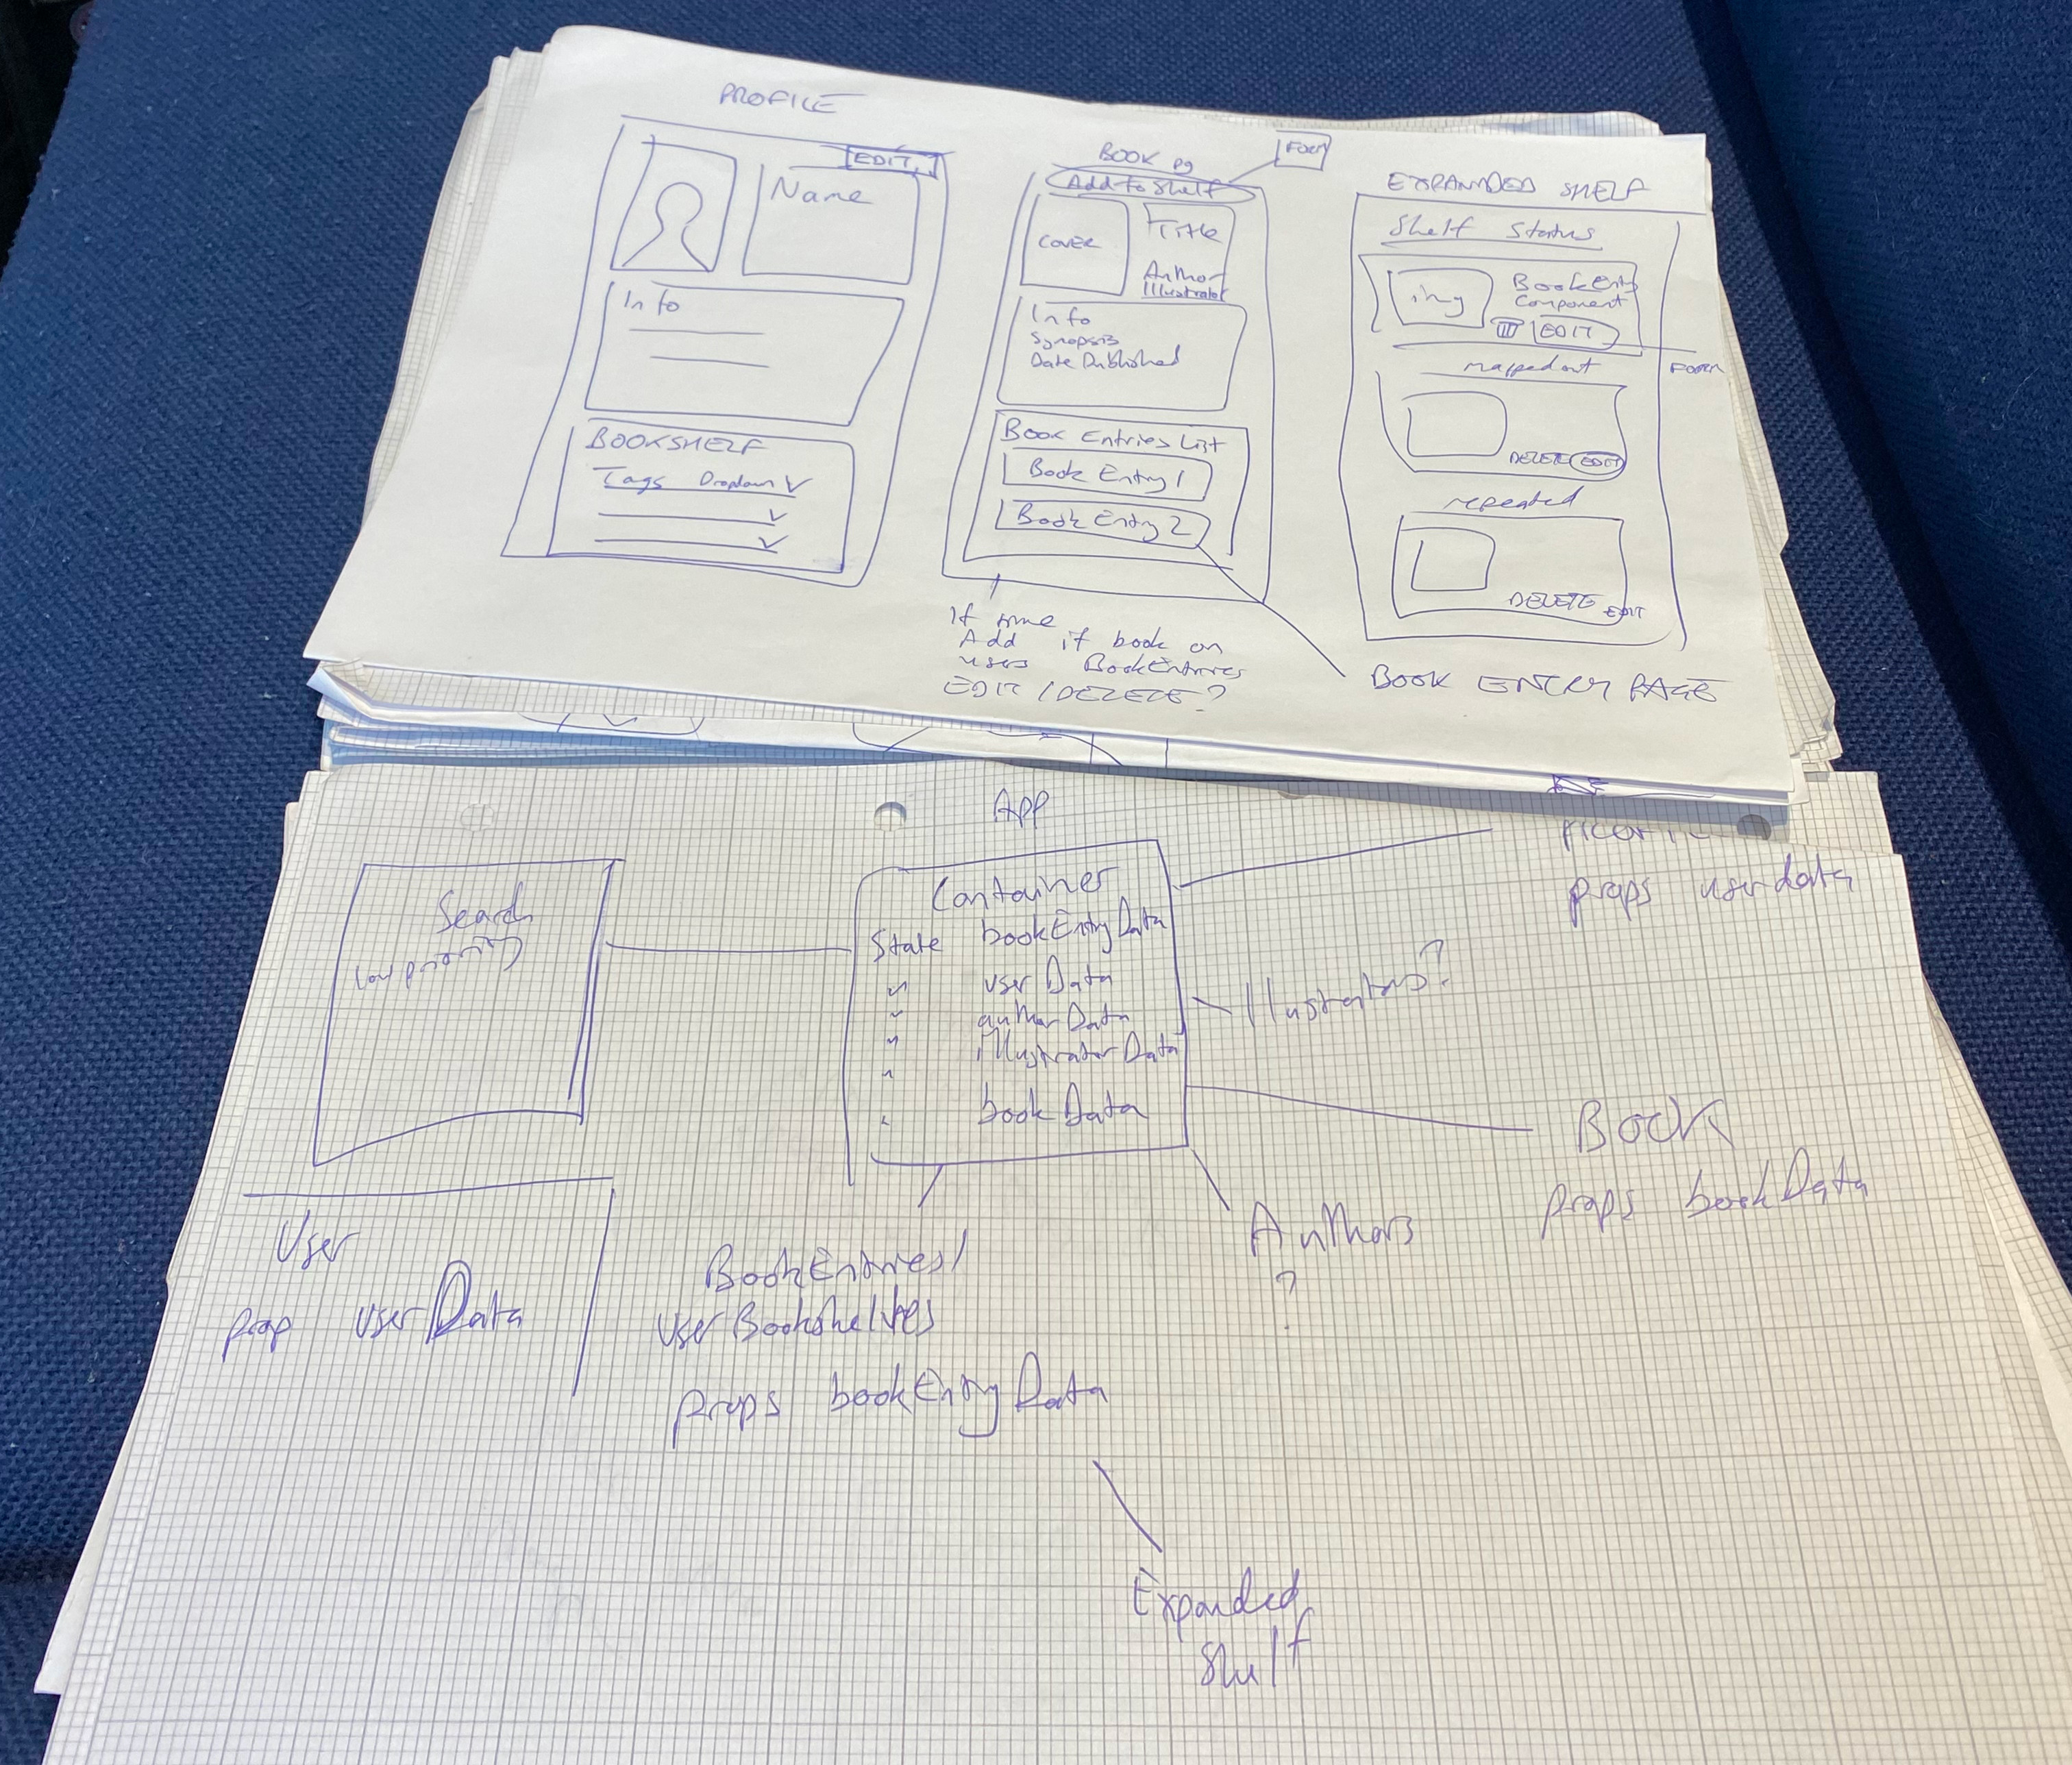 PROFILE
EDIT
Name
Info
BOOKSHELF
Tags Dropdown
BOOK pg
FORM
Add to Shelf
COVER
Title
Author
Illustrator
Info
Synopsis
Date Published
Book Entries List
Book Entry 1
Book Entry 2
If time
Add if book on
users BookEntries
EDIT / DELETE?
BOOK ENTRY PAGE
EXPANDED SHELF
Shelf Status
img
Book Entry
Component
EDIT
FORM
mapped out
DELETE EDIT
repeated
DELETE EDIT
App
Search
low priority
Container
State bookEntryData
userData
authorData
illustratorData
bookData
props userdata
Illustrators?
Book
props bookData
Authors
?
User
prop userData
BookEntries/
userBookshelves
props bookEntryData
Expanded
Shelf